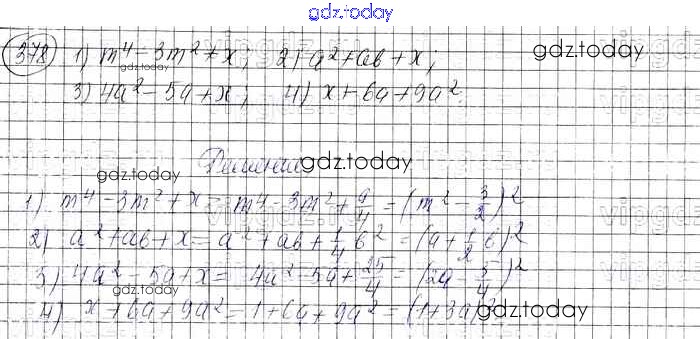 gdz.today
378 1) m⁴ - 3m² + x; 2) a² + ab + x; gdz.today
gdz.today
3) 4a² - 5a + x; 4) x + 6a + 9a².
gdz.today Решение gdz.today
1) m⁴ - 3m² + x = m⁴ - 3m² + 9/4 = (m² - 3/2)²
2) a² + ab + x = a² + ab + 1/4 b² = (a + 1/2 b)²
3) 4a² - 5a + x = 4a² - 5a + 25/4 = (2a - 5/4)²
gdz.today
4) x + 6a + 9a² = 1 + 6a + 9a² = (1 + 3a)² gdz.today